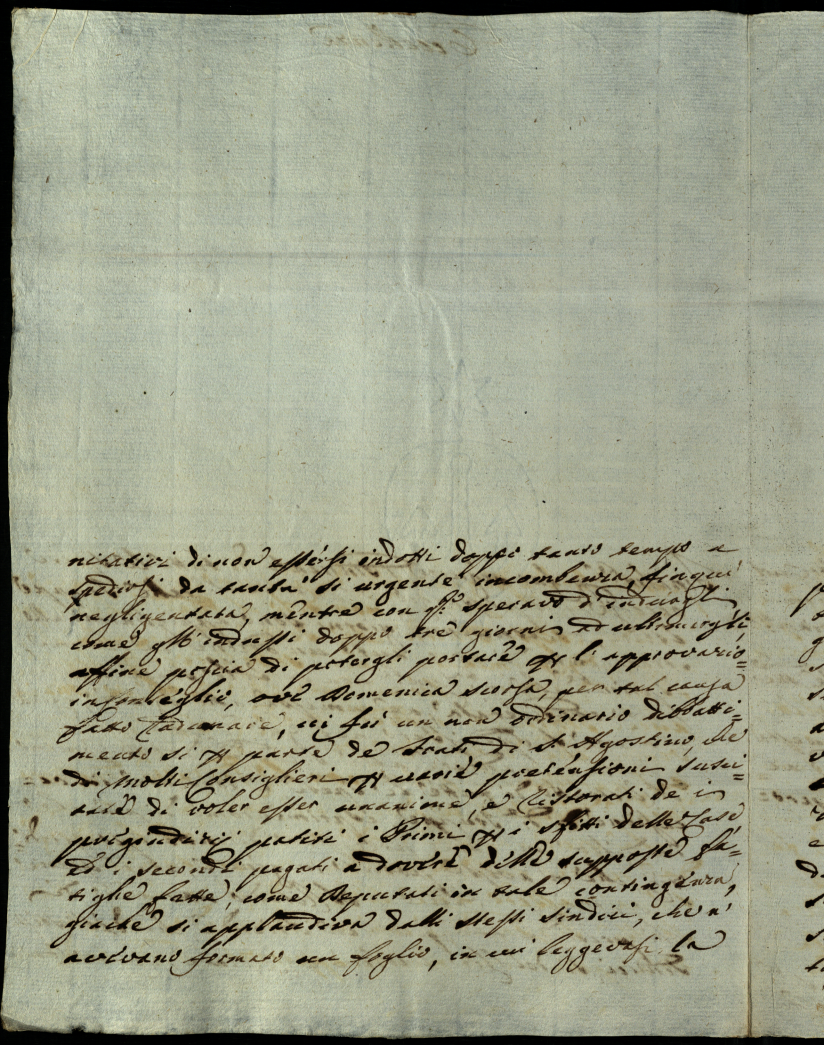 nitativi di non essersi indotti doppo tanto tempo a
spedirsi da tanta si urgente incombenza, fin qui
negligentata, mentre con speravo d'indurgli
come gl'indussi doppo trè giorni ad ultimargli,
affine poscia di potergli portare l'approvazio=
in Conseglio, ove Domenica scorsa, per tal causa
fatto Radunare, vi fù un non ordinario dibatti=
mento si parte de Frati di S. Agostino, che
di molti Consiglieri varie pretensioni susci=
tate di voler esser unanime, e Ristorati de i
pregiudizij patiti i Primi i sfitti delle Case
Ed i secondi pagati a dovere delle supposte fa=
tighe fatte, come Deputati in tale contingenza,
giache si applaudiva dalli stessi Sindici, che n'
avevano formato un foglio, in cui leggevasi la